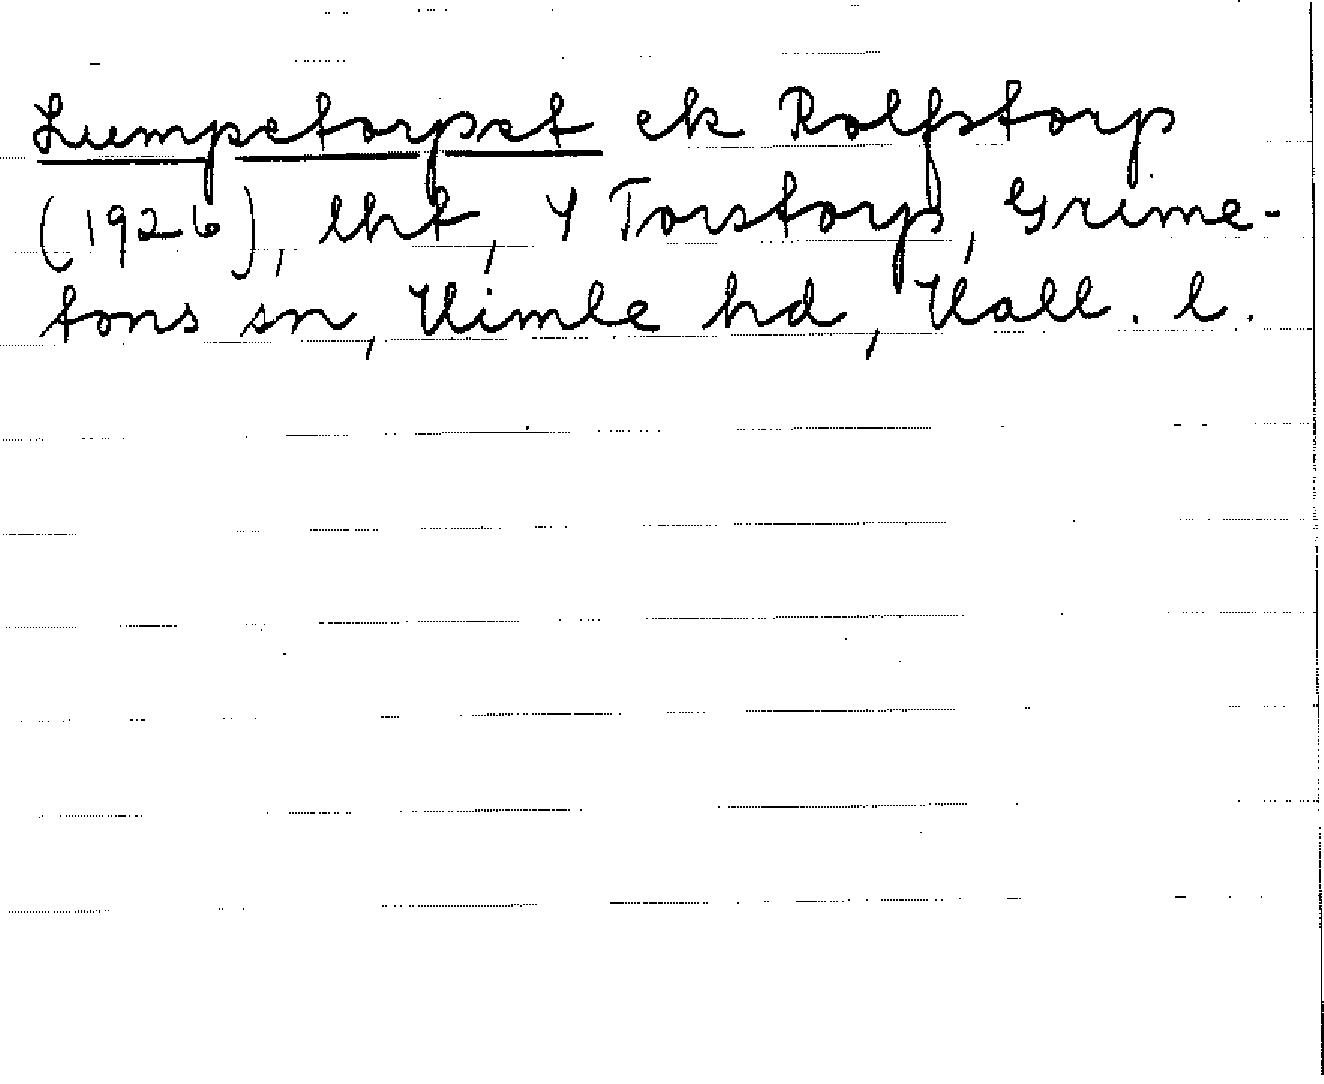 Lumpetorpet ek Rolfstorp
(1926), lht, Y Torstorp, Grime-
tons sn, Himle hd, Hall. l.